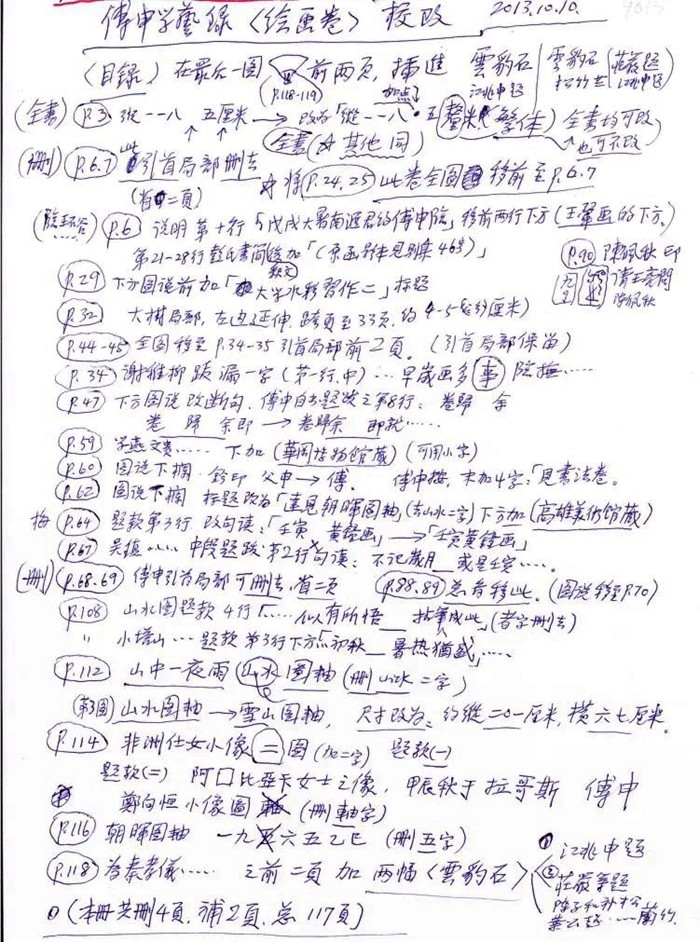 傅申学藝錄〈绘画卷〉校改 2013.10.10.
〈目録〉在最后一图 前两頁, 插進 雲豹石
(P.118-119)
江兆申題
雲豹石
莊嚴題
江兆申題
(全書) P.3 縱一一八 五厘米 → 改為「縱一一八·五釐米」(繁体) 全書均可改
加点
全書 其他同
也可不改
(刪) P.6.7 此引首局部刪去
(省二頁)
将 P.24,25 此卷全圖移前至 P.6.7
P.6 说明第十行「戊戌大暑南遊君約傅申院」移前两行下方 (王翬画的下方)
第21-28行 書简後加「(原函另体見别集 463)」
P.90 陳佩秋印
请王亮問
陳佩秋
P.29 下方图说前加「大学水彩習作二」标题
P.32 大横局部, 左边延伸 跨頁至33頁, 約 4-5 厘米)
P.44-45 全图移至 P.34-35 引首局部前 2 頁。(引首局部保留)
P.34 謝稚柳 跋 漏一字 (第一行, 中) … 早歲画多 事 院……
P.47 下方图说 改断句, 傅申自書題跋之第8行: 卷歸 余
卷 歸 余即 → 卷歸余 即就……
P.59 学燕文贵…… 下加 (華岡博物館蔵) (可用小字)
P.60 图说下欄 鈐印 父申 → 傅. 傅申按, 末加4字:「見書法卷。
P.62 图说下欄 标題改為「遠見朝暉图軸」(去山水二字) 下方加 (高雄美術館蔵)
梅 P.64 題款第3行 改句读:「壬寅 黄鋒画」→「壬寅黄鋒画」
P.67 吴鎮…… 中段題跋 第2行句读: 不记歲月 或是壬寅……
(刪) P.68.69 傅申引首局部可刪去, 省二頁 P.88.89 总者移此. (图说移至 P.70)
P.108 山水图題款 4行「…… 似有所悟 拈筆成此」(者字刪去)
〃 小塔山 … 題款 第3行下方点 初秋 暑热猶盛」……
P.112 山中一夜雨 (山水图軸 (刪 山水 二字)
(第3图) 山水图軸 → 雪山图軸, 尺寸改為: 約縱二〇一厘米, 横六七厘米.
P.114 非洲仕女小像 二 图 (加二字) 題款(一)
題款(二) 阿口比亞卡女士之像, 甲辰秋于拉哥斯 傅申
鄭向恒小像圖 軸 (刪軸字)
P.116 朝暉图軸 一九五六五乙巳 (刪五字)
P.118 為秦孝儀…… 之前二頁 加 两幅〈雲豹石〉
① 江兆申題
② 莊嚴等題
葉公超 … 蘭竹.
(本冊共刪4頁, 補2頁, 总 117頁)